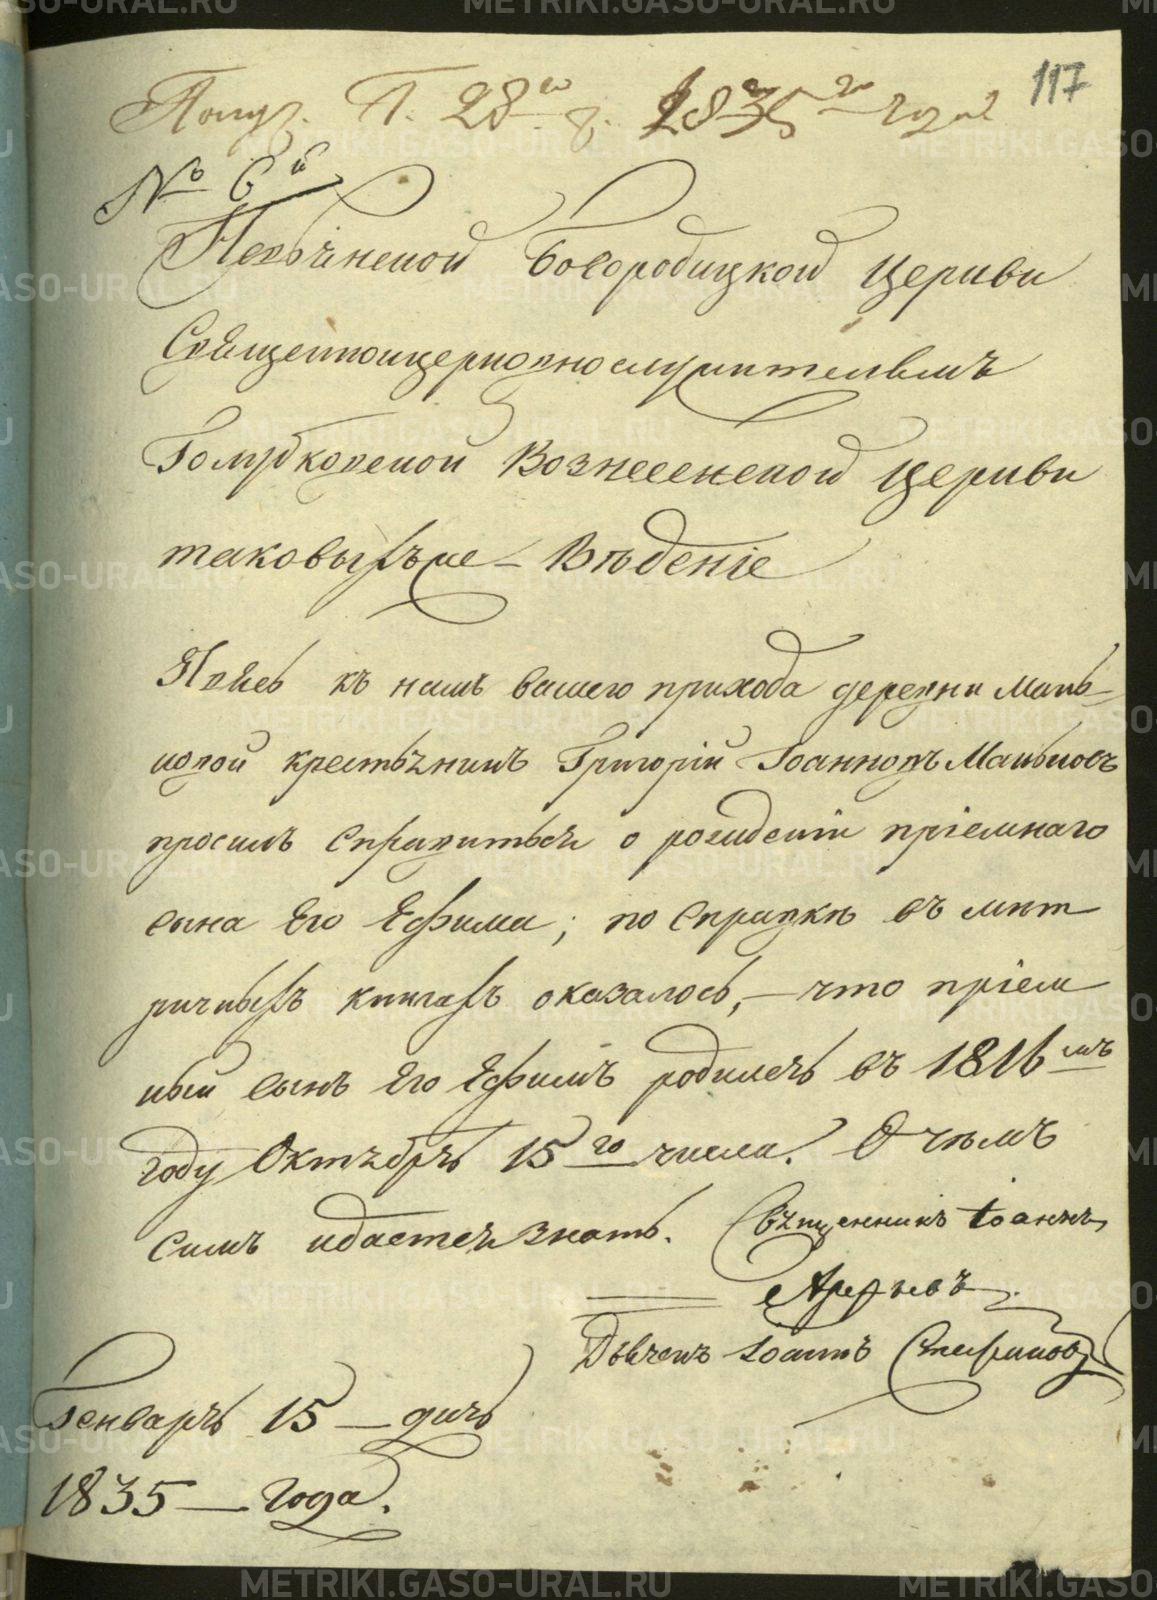 117
Получ. Г. 28го ч. 1835го года
№ 6й
Богородицкой Церкви
Священноицерковнослужителямъ
Голубковской Вознесенской Церкви
таковыхъ же – Вѣдѣніе
Явясь къ намъ вашего прихода деревни Мань-
ковой крестьянинъ Григорій Іоанновъ Маньковъ
просилъ справиться о рожденіи пріемнаго
сына Его Ефима; по справкѣ въ мѣт
ричныхъ книгахъ оказалось, – что пріем
ный сынъ Его Ефимъ родился въ 1816мъ
году Октября 15го числа. О чѣмъ
симъ и дается знать. Священникъ Іоаннъ
Дьячекъ Іоаннъ Стефановъ
Генваря 15 – дня
1835 – года.
METRIKI.GASO-URAL.RU